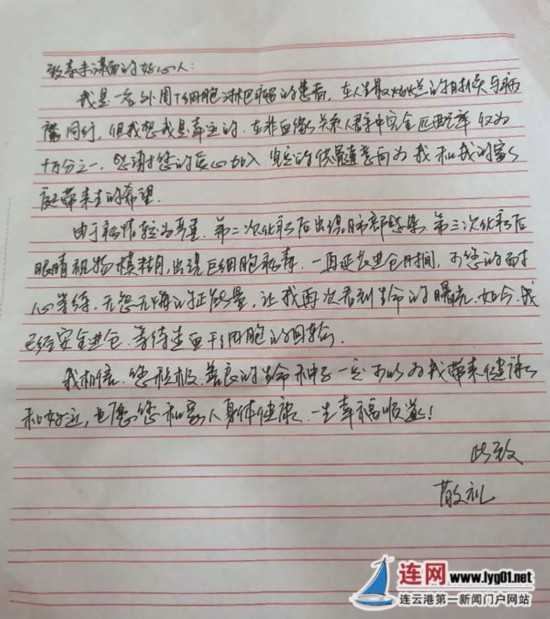 致素未谋面的好心人：
我是一名外周T细胞淋巴瘤的患者，在人生最灿烂的时候与病
魔同行，但我想我是幸运的，在非血缘关系人群中完全匹配率仅为
十万分之一，感谢您的爱心加入，您的供髓意向为我和我的家
庭带来生的希望。
由于病情较为严重，第二次化疗后出现肺部感染，第三次化疗后
眼睛视物模糊，出现巨细胞病毒，一再延长进仓时间，而您的耐
心等待，无怨无悔的正能量，让我再次看到生命的曙光，如今，我
已经安全进仓，等待造血干细胞的回输。
我相信，您积极、善良的生命种子一定可以为我带来健康
和好运，也愿您和家人身体健康，一生幸福顺遂！
此致
敬礼
连网 www.lyg01.net
连云港第一新闻门户网站